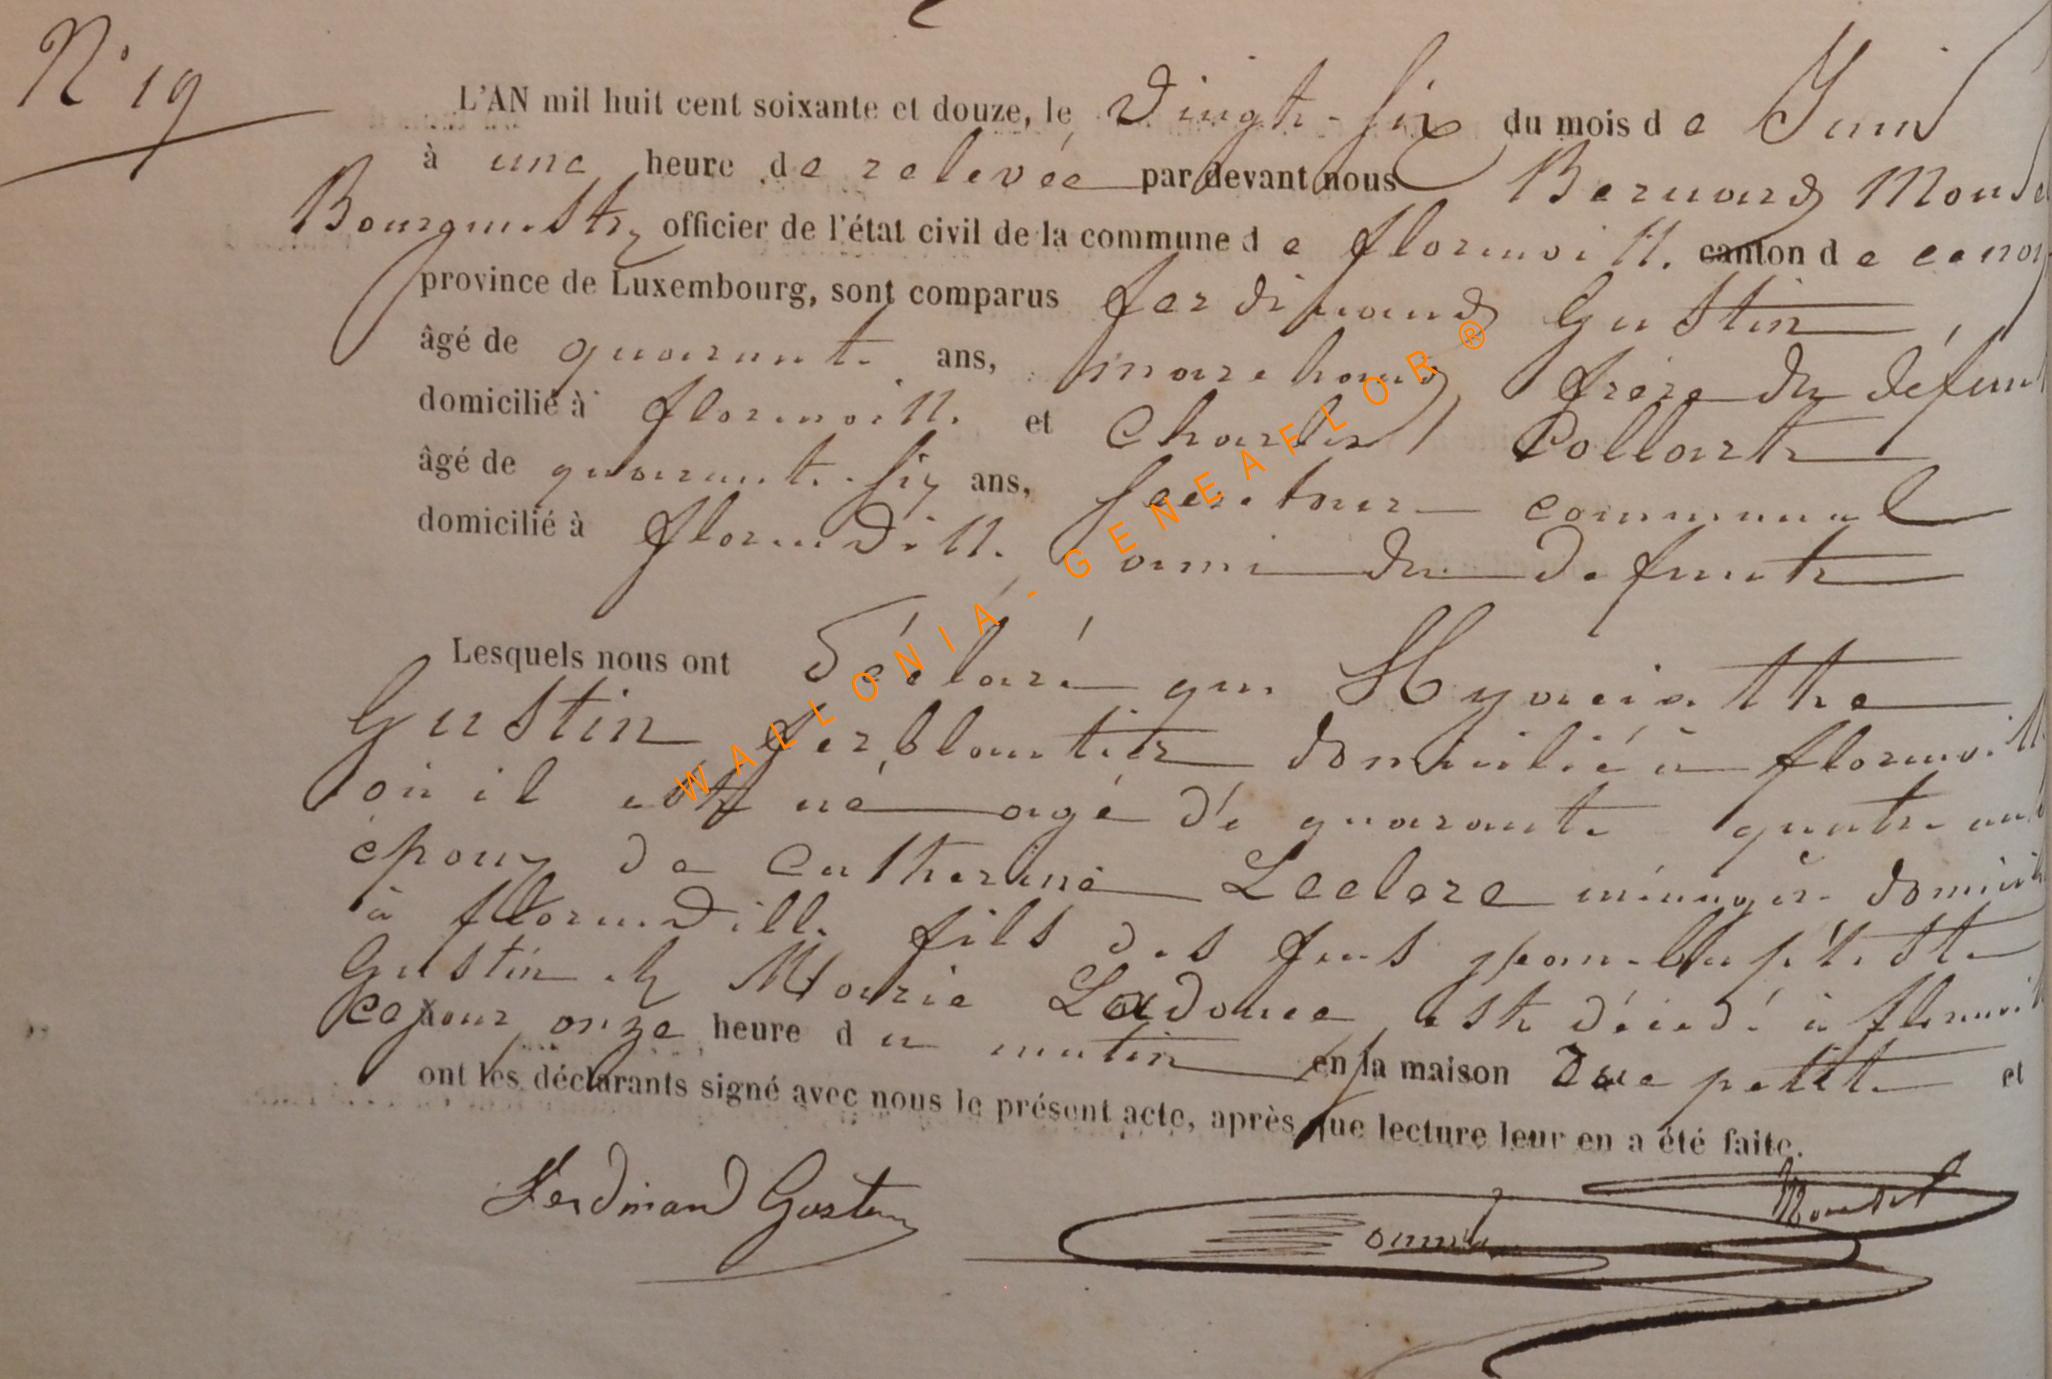 N° 19
L'AN mil huit cent soixante et douze, le Vingt-six du mois de Juin
à une heure de relevée par devant nous Bernard
Bourgmestre officier de l'état civil de la commune de florenville canton de ce nom
province de Luxembourg, sont comparus ferdinand Gustin
âgé de quarante ans, marchand, frère du défunt
domicilié à florenville et Charles Collart
âgé de quarante-six ans, secretaire communal
domicilié à florenville ami du defunt
Lesquels nous ont déclaré que Hyacinthe
Gustin ferblantier domicilié à florenville
où il est né agé dé quarante quatre ans
époux de Catherine Leclere ménagère domicilié
à florenville fils des feus jean-baptiste
Gustin et Marie Ladouce est décédé à florenville
ce jour onze heure du matin en la maison petite et
ont les déclarants signé avec nous le présent acte, après que lecture leur en a été faite.
Ferdinand Gustin
WALLONIA-GENEAFLOR®